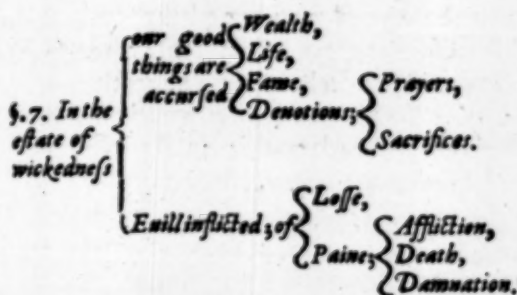 §.7. In the
estate of
wickedness
our good
things are
accursed
Wealth,
Life,
Fame,
Deuotions;
Prayers,
Sacrifices.
Euill inflicted; of
Losse,
Paine;
Affliction,
Death,
Damnation.